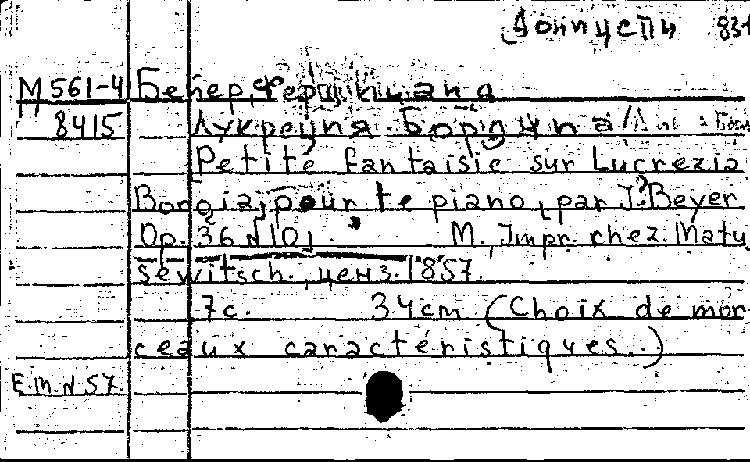 Доницетти 831
М 561-4 Бейер, Фердинанд
8415 Лукреция Борджиа
Petite fantaisie sur Lucrezia
Borgia, pour le piano, par J? Beyer
Op. 36 N 10. М. Impr. chez Matu
sewitsch., ценз. 1857.
7с. 34см (Choix de mor
ceaux caractéristiques.)
Е.т. N 57